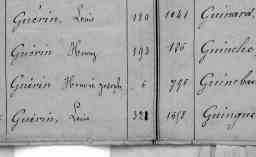 Guérin, Louis 180 1041 Guinard,
Guérin Henry 193 186 Guincho
Guérin Honoré Joseph 6 796
Guérin, Louis 321 1658 Guingue